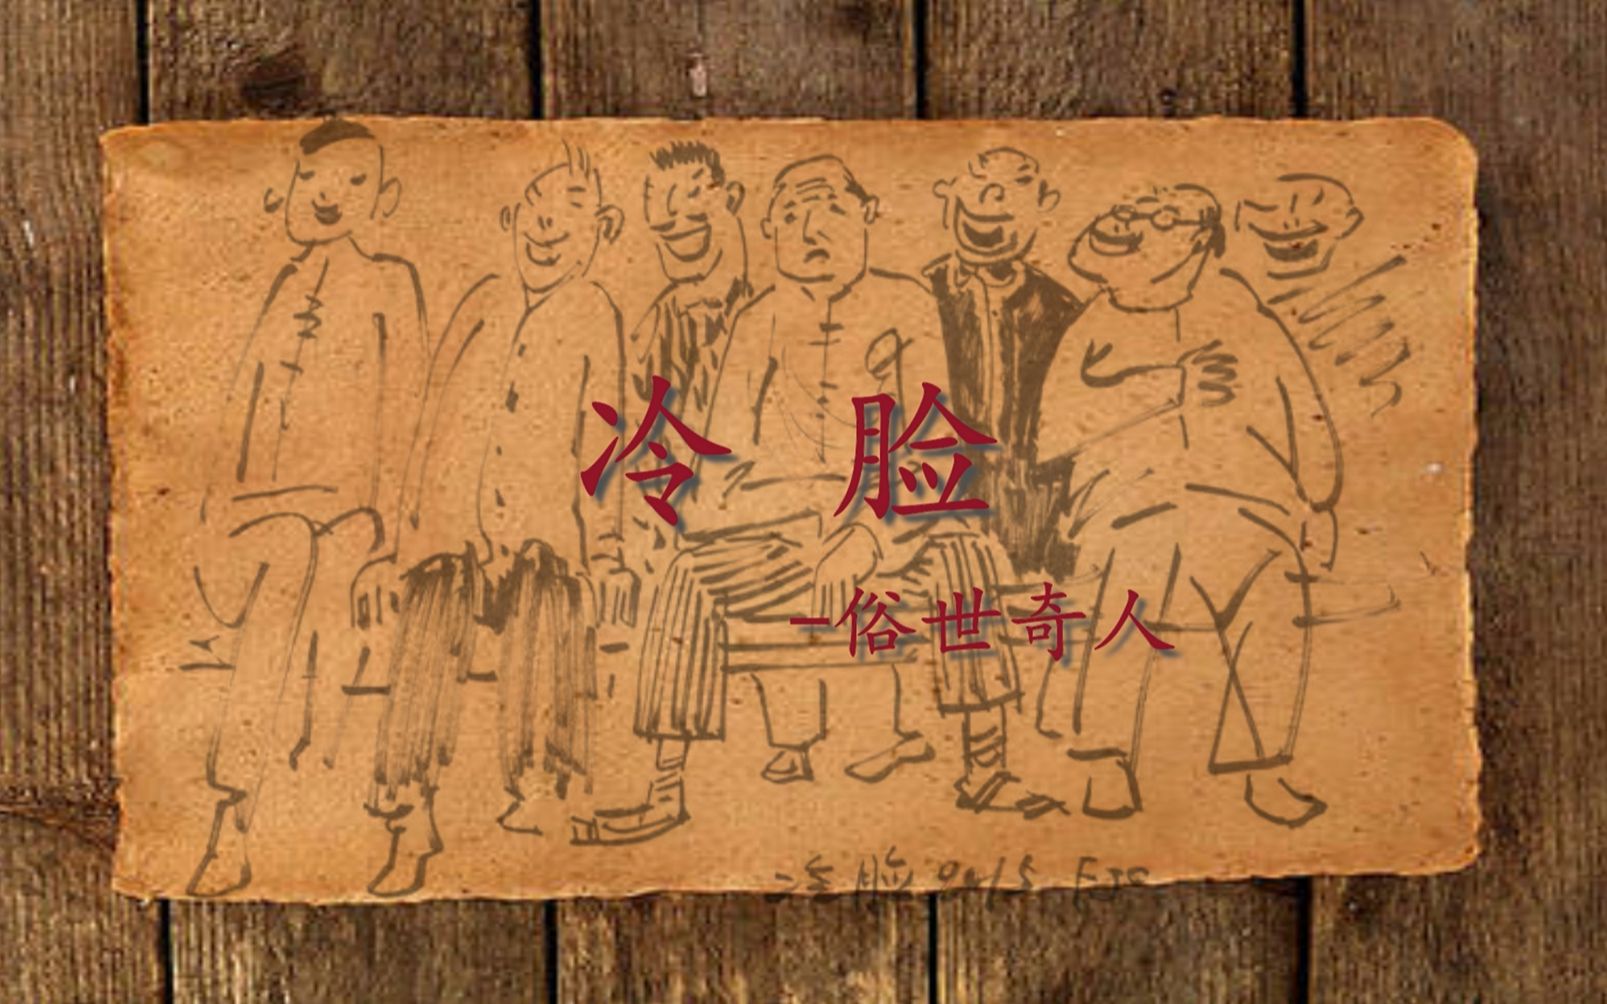 冷脸
-俗世奇人
冷脸 2015 FJC